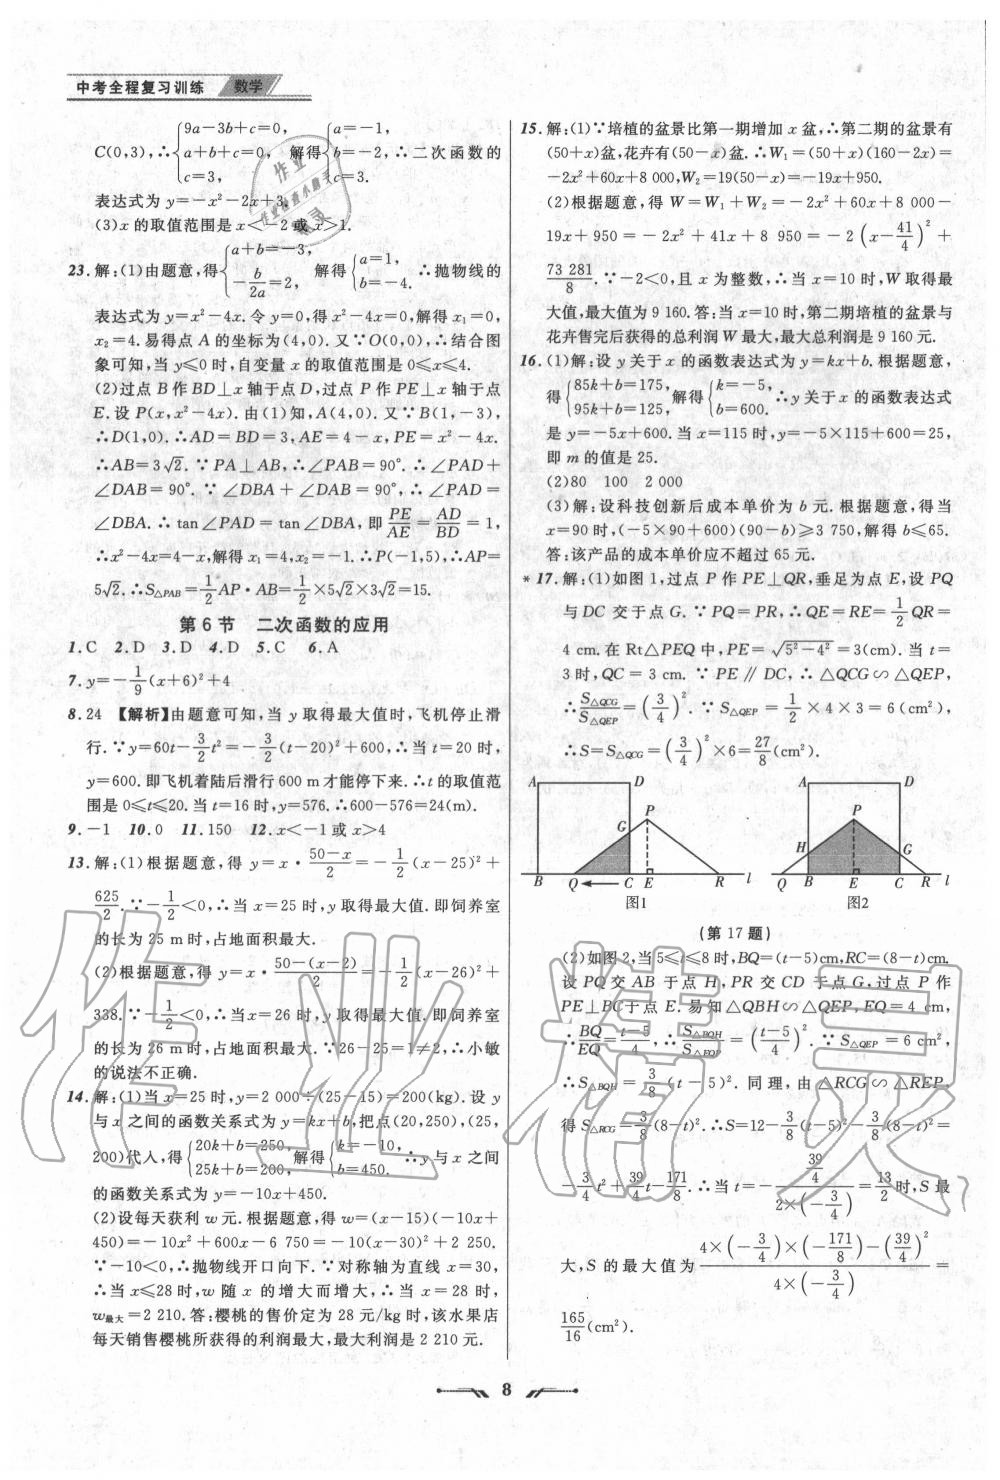 中考全程复习训练 数学
C(0,3),∴{9a−3b+c=0, a+b+c=0, c=3, 解得{a=−1, b=−2, c=3. ∴二次函数的
表达式为 y=−x²−2x+3.
(3)x 的取值范围是 x<−2 或 x>1.
23.解:(1)由题意,得{a+b=−3, −b/2a=2, 解得{a=1, b=−4. ∴抛物线的
表达式为 y=x²−4x.令 y=0,得 x²−4x=0,解得 x₁=0,
x₂=4.易得点 A 的坐标为(4,0).又∵O(0,0),∴结合图
象可知,当 y≤0 时,自变量 x 的取值范围是 0≤x≤4.
(2)过点 B 作 BD⊥x 轴于点 D,过点 P 作 PE⊥x 轴于点
E.设 P(x,x²−4x).由(1)知,A(4,0).又∵B(1,−3),
∴D(1,0).∴AD=BD=3,AE=4−x,PE=x²−4x.
∴AB=3√2.∵PA⊥AB,∴∠PAB=90°.∴∠PAD+
∠DAB=90°.∵∠DBA+∠DAB=90°,∴∠PAD=
∠DBA.∴tan∠PAD=tan∠DBA,即 PE/AE=AD/BD=1,
∴x²−4x=4−x,解得 x₁=4,x₂=−1.∴P(−1,5),∴AP=
5√2.∴S△PAB=1/2AP·AB=1/2×5√2×3√2=15.
第 6 节 二次函数的应用
1.C 2.D 3.D 4.D 5.C 6.A
7.y=−1/9(x+6)²+4
8.24 【解析】由题意可知,当 y 取得最大值时,飞机停止滑
行.∵y=60t−3/2t²=−3/2(t−20)²+600,∴当 t=20 时,
y=600.即飞机着陆后滑行 600 m才能停下来.∴t 的取值范
围是 0≤t≤20.当 t=16 时,y=576.∴600−576=24(m).
9.−1 10.0 11.150 12.x<−1 或 x>4
13.解:(1)根据题意,得 y=x·(50−x)/2=−1/2(x−25)²+
625/2.∵−1/2<0,∴当 x=25 时,y 取得最大值.即饲养室
的长为 25 m 时,占地面积最大.
(2)根据题意,得 y=x·(50−(x−2))/2=−1/2(x−26)²+
338.∵−1/2<0,∴当 x=26 时,y取得最大值.即饲养室
的长为 26 m 时,占地面积最大.∵26−25=1≠2,∴小敏
的说法不正确.
14.解:(1)当 x=25 时,y=2 000÷(25−15)=200(kg).设 y
与 x 之间的函数关系式为 y=kx+b,把点(20,250),(25,
200)代入,得{20k+b=250, 25k+b=200, 解得{k=−10, b=450. ∴y 与 x 之间
的函数关系式为 y=−10x+450.
(2)设每天获利 w 元.根据题意,得 w=(x−15)(−10x+
450)=−10x²+600x−6 750=−10(x−30)²+2 250.
∵−10<0,∴抛物线开口向下.∵对称轴为直线 x=30,
∴当 x≤28 时,w 随 x 的增大而增大,∴当 x=28 时,
w最大=2 210.答:樱桃的售价定为 28 元/kg时,该水果店
每天销售樱桃所获得的利润最大,最大利润是 2 210 元.
15.解:(1)∵培植的盆景比第一期增加 x 盆,∴第二期的盆景有
(50+x)盆,花卉有(50−x)盆.∴W₁=(50+x)(160−2x)=
−2x²+60x+8 000,W₂=19(50−x)=−19x+950.
(2)根据题意,得 W=W₁+W₂=−2x²+60x+8 000−
19x+950=−2x²+41x+8 950=−2(x−41/4)²+
73 281/8.∵−2<0,且 x 为整数,∴当 x=10 时,W 取得最
大值,最大值为 9 160.答:当 x=10 时,第二期培植的盆景与
花卉售完后获得的总利润 W 最大,最大总利润是 9 160 元.
16.(1)解:设 y 关于 x 的函数表达式为 y=kx+b.根据题意,
得{85k+b=175, 95k+b=125, 解得{k=−5, b=600. ∴y 关于 x 的函数表达式
是 y=−5x+600.当 x=115 时,y=−5×115+600=25,
即 m 的值是 25.
(2)80 100 2 000
(3)解:设科技创新后成本单价为 b 元.根据题意,得当
x=90 时,(−5×90+600)(90−b)≥3 750,解得 b≤65.
答:该产品的成本单价应不超过 65 元.
*17.解:(1)如图 1,过点 P 作 PE⊥QR,垂足为点 E,设 PQ
与 DC 交于点 G.∵PQ=PR,∴QE=RE=1/2QR=
4 cm.在 Rt△PEQ 中,PE=√(5²−4²)=3(cm).当 t=
3 时,QC=3 cm.∵PE∥DC,∴△QCG∽△QEP,
∴S△QCG/S△QEP=(3/4)².∵S△QEP=1/2×4×3=6(cm²),
∴S=S△QCG=(3/4)²×6=27/8(cm²).
A D P G B Q C E R l
图1
A D P H G Q B E C R l
图2
(第 17 题)
(2)如图 2,当 5≤t≤8 时,BQ=(t−5)cm,RC=(8−t)cm.
设 PQ 交 AB 于点 H,PR 交 CD 于点 G,过点 P 作
PE⊥BC于点 E.易知△QBH∽△QEP,EQ=4 cm,
∴BQ/EQ=(t−5)/4,∴S△BQH/S△EQP=((t−5)/4)².∵S△QEP=6 cm²,
∴S△BQH=3/8(t−5)².同理,由△RCG∽△REP,
得 S△RCG=3/8(8−t)².∴S=12−3/8(t−5)²−3/8(8−t)²=
−3/4t²+39/4t−171/8.∴当 t=−(39/4)/(2×(−3/4))=13/2时,S 最
大,S 的最大值为(4×(−3/4)×(−171/8)−(39/4)²)/(4×(−3/4))=
165/16(cm²).
8
作业精灵